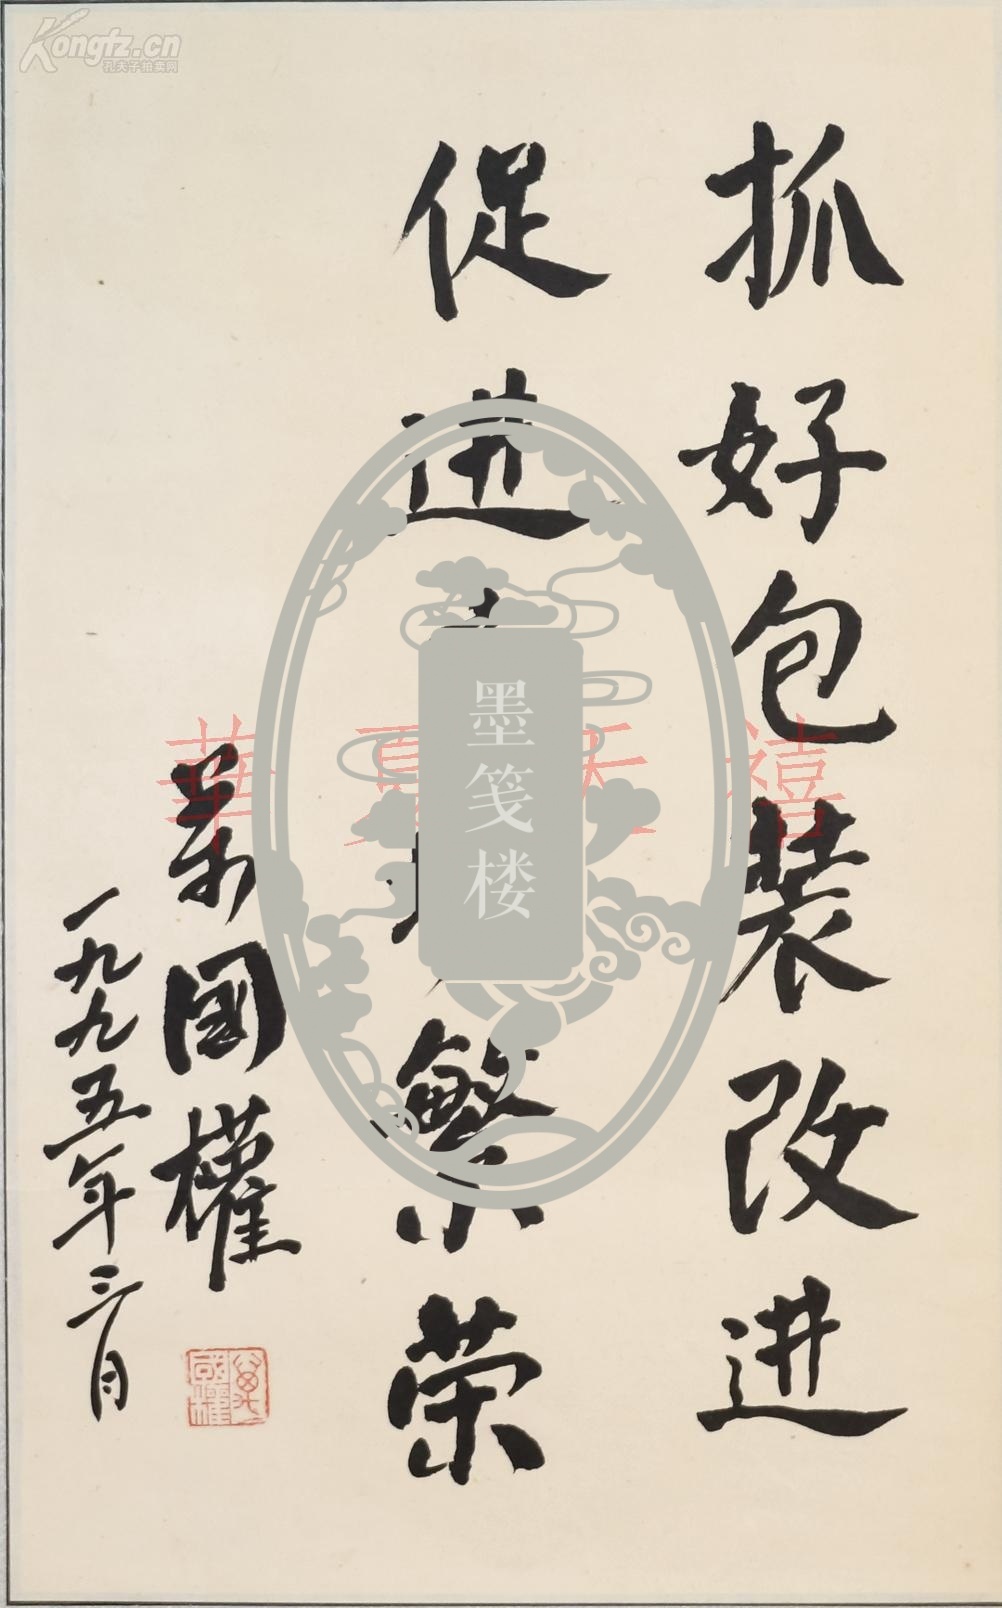 抓好包装改进
促进
繁荣
万國權
一九九五年三月
萬國權
Kongfz.cn
孔夫子拍卖网
華夏天禧
墨笺楼